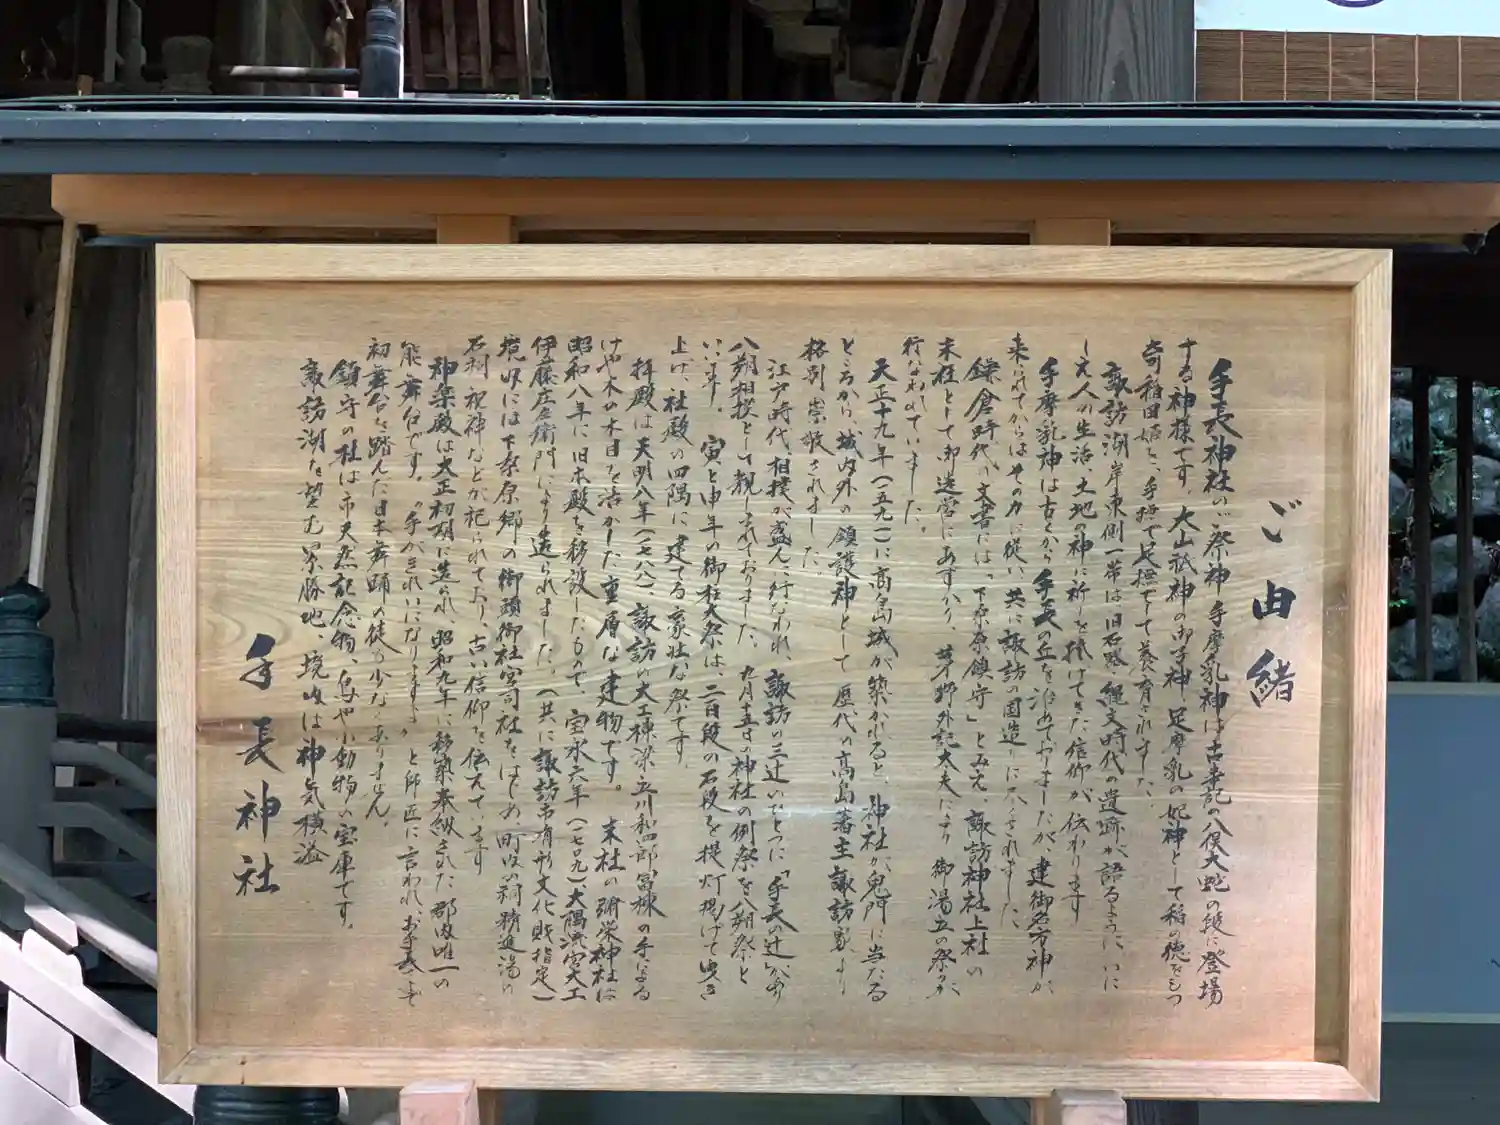 ご由緒
手長神社の祭神手摩乳神は古事記の八俣大蛇の段に登場
する神様です。大山祇神の御子神、足摩乳の妃神として稲の徳をもつ
奇稲田姫を、手撫で足撫でして養育されました。
諏訪湖岸東側一帯は旧石器、縄文時代の遺跡が語るように、いに
しえ人の生活、土地の神に祈りを捧げてきた信仰が伝わります
手摩乳神は古くから手長の丘を治めておりましたが、建御名方神が
来られてからはその力に従い、共に諏訪の国造りに尽くされました
鎌倉時代の文書には「下桑原鎮守」とみえ、諏訪神社上社の
末社として御造営にあずかり、茅野外記大夫により御湯立の祭りが
行なわれていました。
天正十九年(一五九一)に高島城が築かれると、神社が鬼門に当たる
ところから、城内外の鎮護神として歴代の高島藩主諏訪家より
格別崇敬されました。
江戸時代、相撲が盛んに行なわれ、諏訪の三辻のひとつに「手長の辻」があり
八朔相撲として親しまれておりました。九月十五日の神社の例祭を八朔祭と
いいます。寅と申年の御柱大祭は、二百段の石段を提灯掲げて曳き
上げ、社殿の四隅に建てる豪壮な祭です。
拝殿は天明八年(一七八八)、諏訪の大工棟梁立川和四郎冨棟の手による
けやき木の木目を活かした重層な建物です。末社の彌栄神社は
昭和八年に旧本殿を移設したもので、宝永六年(一七〇九)大隅流宮大工
伊藤庄左衛門により造られました。(共に諏訪市有形文化財指定)
境内には下桑原郷の御頭御社宮司社をはじめ、町内の祠、精進湯の
石祠、祝神などが祀られており、古い信仰を伝えています
神楽殿は大正初期に造られ、昭和九年に移築奉納された郡内唯一の
能舞台です。「手がきれいになりますよ」と師匠に言われ、お手長さまで
初舞台を踏んだ日本舞踊の徒も少なくありません。
鎮守の杜は市天然記念物、鳥や小動物の宝庫です。
諏訪湖を望む景勝地、境内は神気横溢
手長神社